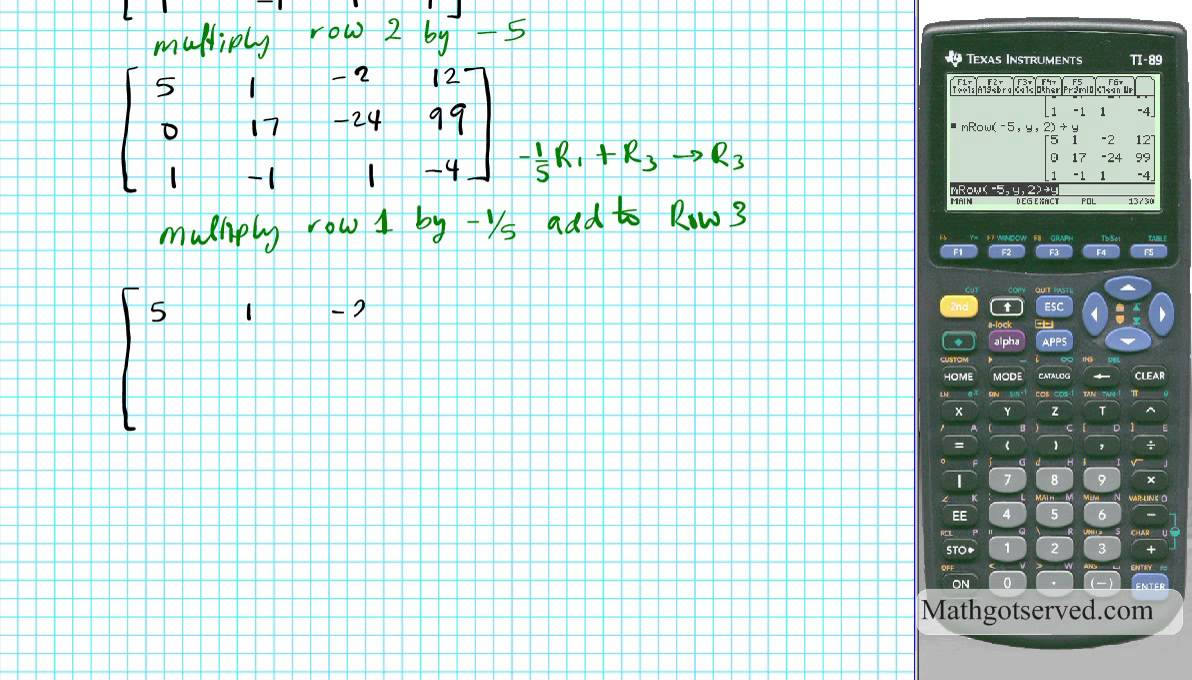 multiply row 2 by -5
5 1 -2 12
0 17 -24 99
1 -1 1 -4
-1/5 R1 + R3 → R3
multiply row 1 by -1/5 add to Row 3
5 1 -2
TEXAS INSTRUMENTS TI-89
F1 F2 F3 F4 F5 F6
Tools Algebra Calc Other PrgmIO Clean Up
1 -1 1 -4
mRow(-5, y, 2) → y
5 1 -2 12
0 17 -24 99
1 -1 1 -4
mRow(-5,y,2)→y
MAIN DEG EXACT POL 13/30
F6 Y= F7 WINDOW F8 GRAPH TblSet TABLE
F1 F2 F3 F4 F5
CUT COPY QUIT PASTE
2nd ↑ ESC
a-lock
alpha APPS
CUSTOM INS DEL
HOME MODE CATALOG ← CLEAR
LN SIN SIN⁻¹ COS COS⁻¹ TAN TAN⁻¹ π θ
X Y Z T ^
A B C D E
= ( ) , ÷
F G H I J
| 7 8 9 ×
K L MATH M MEM N VAR-LINK O
EE 4 5 6 −
RCL P Q R UNITS S CHAR U
STO▸ 1 2 3 +
OFF V W ANS ENTRY
ON 0 . (−) ENTER
Mathgotserved.com